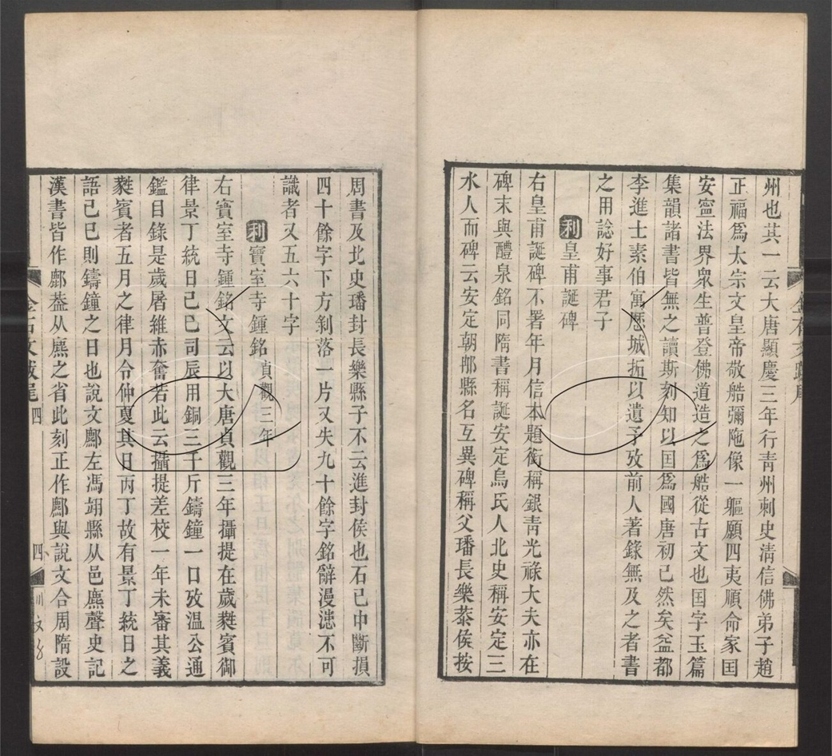 州也其一云大唐顯慶三年行青州刺史清信佛弟子趙
正福爲太宗文皇帝敬䑪彌陁像一軀願四夷順命家囯
安寧法界衆生普登佛道造之爲䑪從古文也囯字玉篇
集韻諸書皆無之讀斯刻知以囯爲國唐初已然矣益都
李進士素伯寓厯城拓以遺予攷前人著錄無及之者書
之用諗好事君子
利皇甫誕碑
右皇甫誕碑不署年月信本題銜稱銀青光祿大夫亦在
碑末與醴泉銘同隋書稱誕安定烏氏人北史稱安定三
水人而碑云安定朝那縣名互異碑稱父璠長樂恭侯按
周書及北史璠封長樂縣子不云進封侯也石已中斷損
四十餘字下方剝落一片又失九十餘字銘辭漫漶不可
識者又五六十字
利寶室寺鍾銘貞觀三年
右寶室寺鍾銘文云以大唐貞觀三年攝提在歲蕤賓御
律景丁統日己巳司辰用銅三千斤鑄鐘一口攷溫公通
鑑目錄是歲屠維赤奮若此云攝提差校一年未審其義
蕤賓者五月之律月令仲夏其日丙丁故有景丁統日之
語己巳則鑄鐘之日也說文鄜左馮翊縣从邑麃聲史記
漢書皆作鄜葢从麃之省此刻正作鄜與說文合周隋設
金石文跋尾
四
四